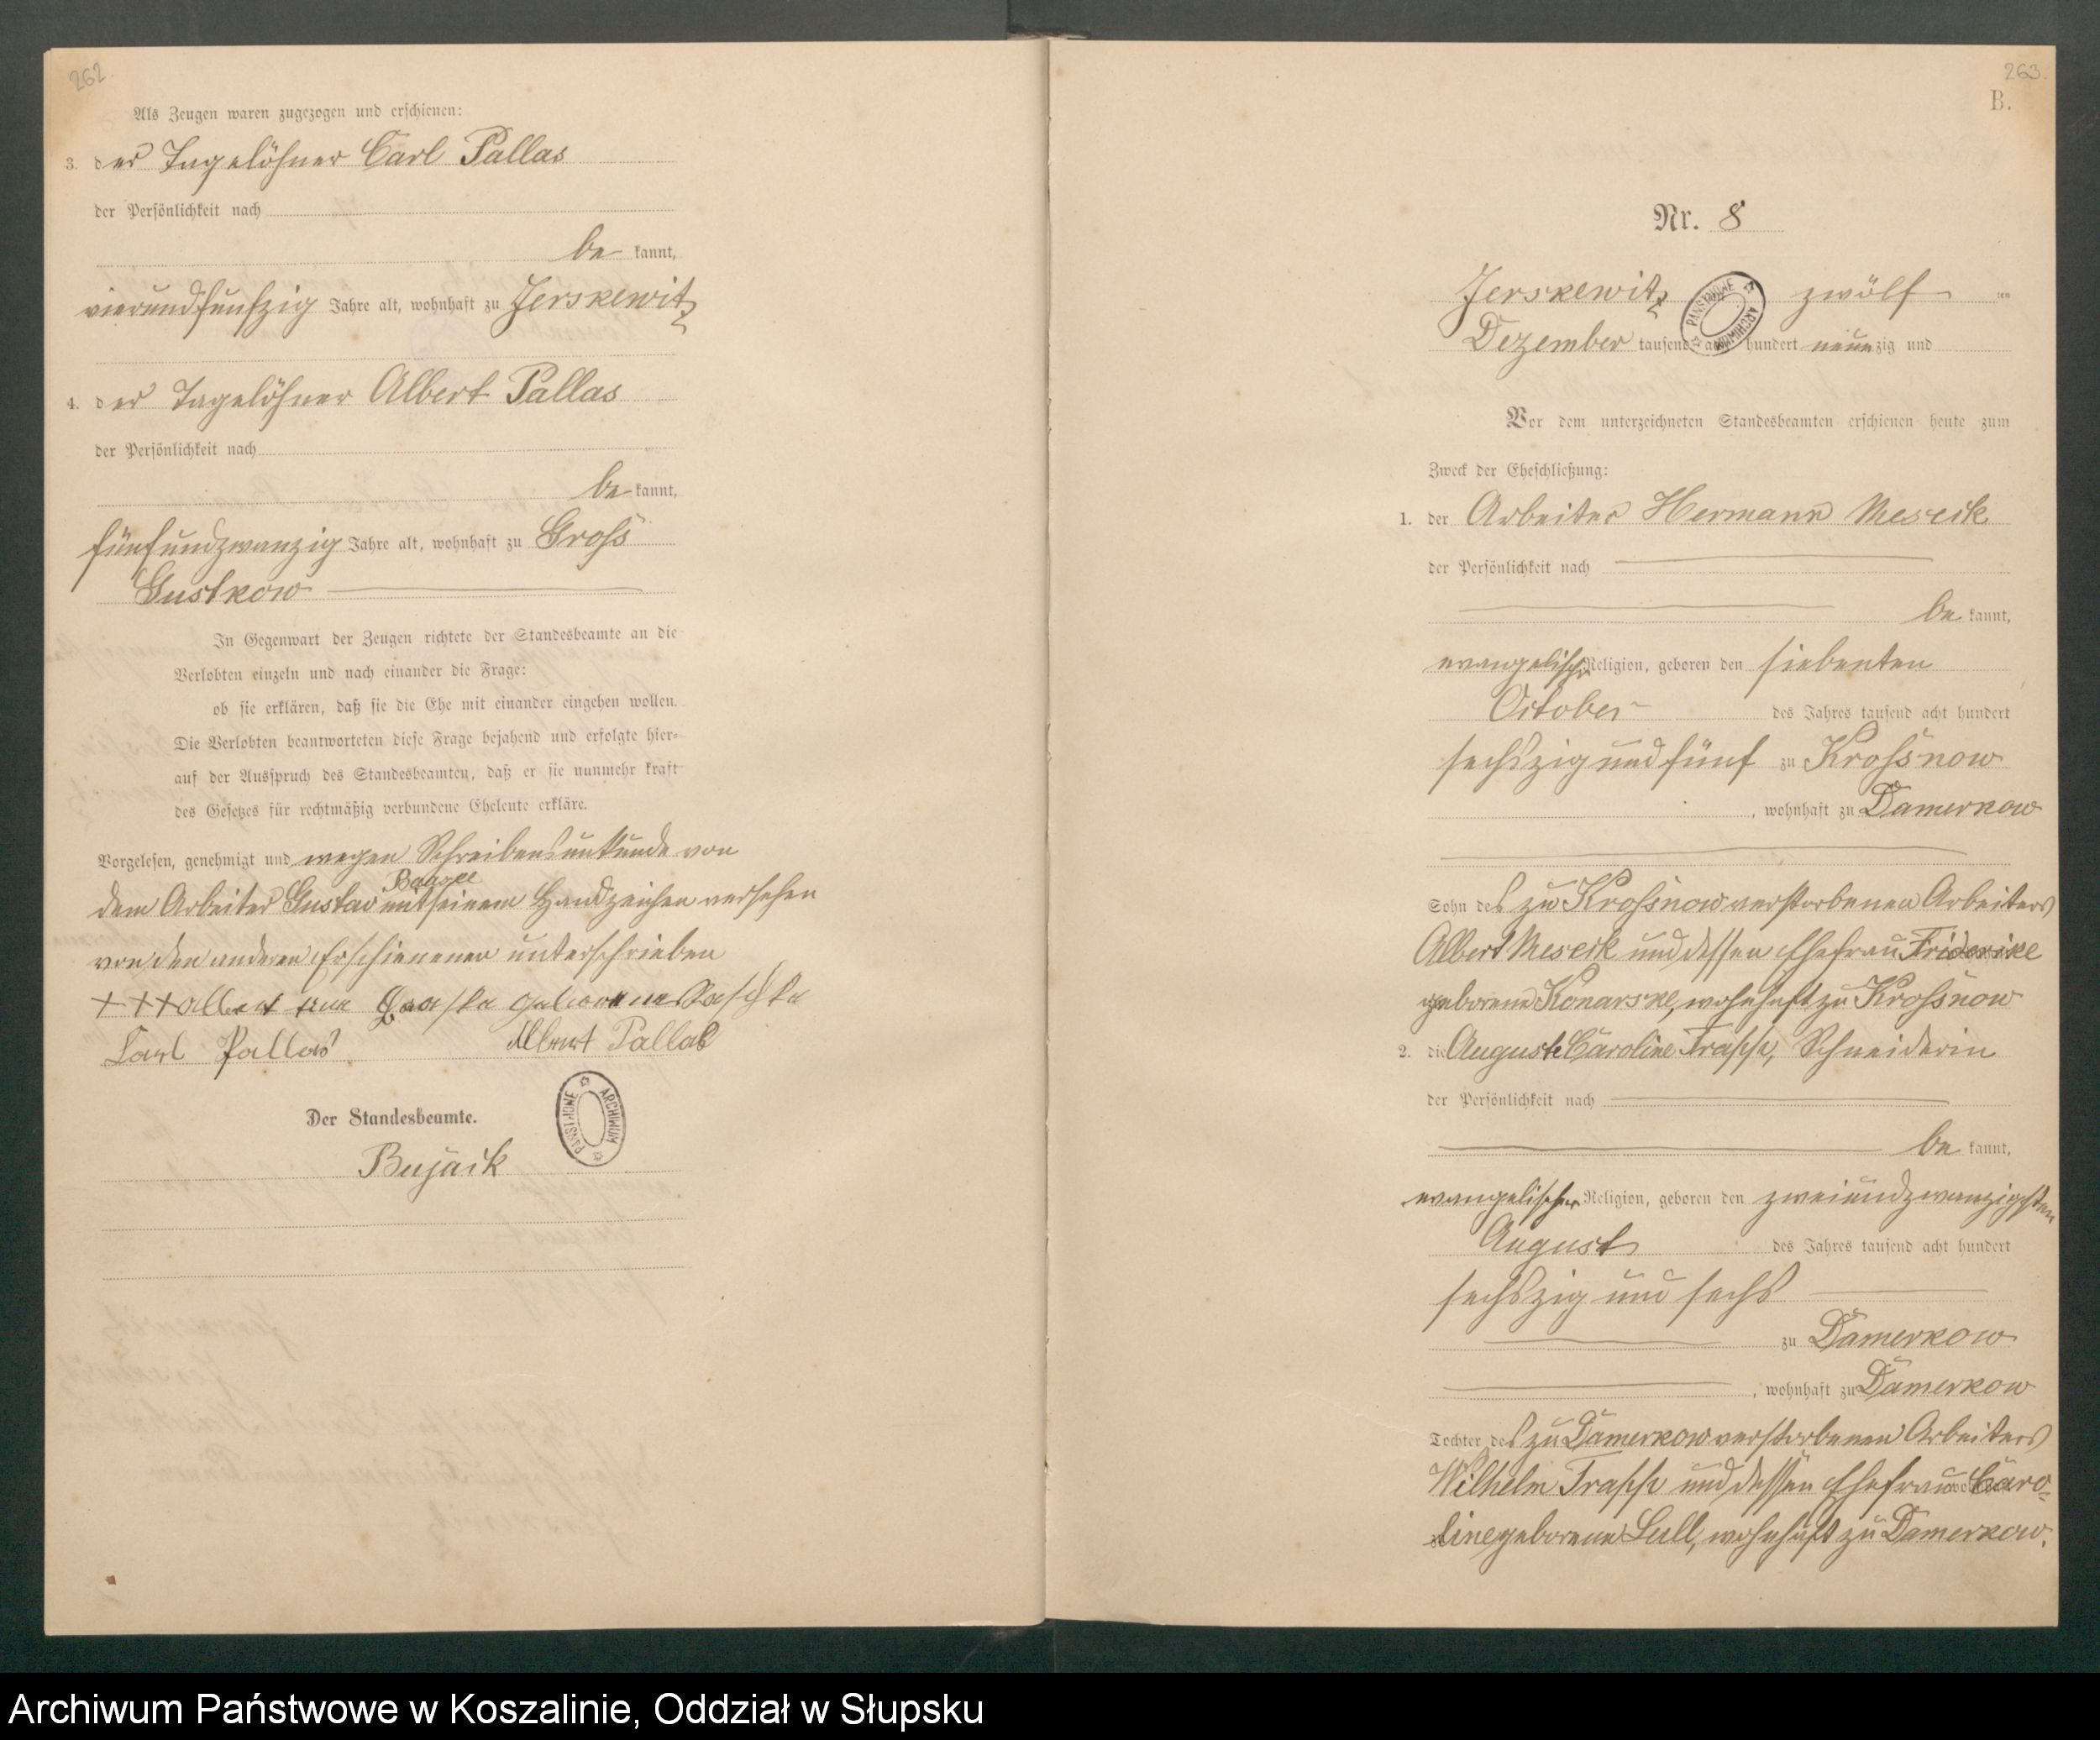 262.
Als Zeugen waren zugezogen und erschienen:
3. der Tagelöhner Carl Pallas
der Persönlichkeit nach
be kannt,
vierundfünfzig Jahre alt, wohnhaft zu Jerskewitz
4. der Tagelöhner Albert Pallas
der Persönlichkeit nach
be kannt,
fünfundzwanzig Jahre alt, wohnhaft zu Gross
Gustkow
In Gegenwart der Zeugen richtete der Standesbeamte an die
Verlobten einzeln und nach einander die Frage:
ob sie erklären, daß sie die Ehe mit einander eingehen wollen.
Die Verlobten beantworteten diese Frage bejahend und erfolgte hier-
auf der Ausspruch des Standesbeamten, daß er sie nunmehr kraft
des Gesetzes für rechtmäßig verbundene Eheleute erkläre.
Vorgelesen, genehmigt und wegen Schreibensunkunde von
dem Arbeiter Gustav mit seinem Handzeichen versehen
von den anderen Erschienenen unterschrieben
+++ geborene
Carl Pallas Albert Pallas
Der Standesbeamte.
PAŃSTWOWE ARCHIWUM
Bujack
263.
B.
Nr. 8
Jerskewitz zwölf ten
PAŃSTWOWE ARCHIWUM
Dezember tausend acht hundert neunzig und
Vor dem unterzeichneten Standesbeamten erschienen heute zum
Zweck der Eheschließung:
1. der Arbeiter Hermann Meseck
der Persönlichkeit nach
be kannt,
evangelischer Religion, geboren den siebenten
October des Jahres tausend acht hundert
sechszig und fünf zu Krossnow
, wohnhaft zu Damerkow
Sohn des zu Krossnow verstorbenen Arbeiters
Albert Meseck und dessen Ehefrau Friderike
geborene Konarske, wohnhaft zu Krossnow
2. die Auguste Caroline Trapp, Schneiderin
der Persönlichkeit nach
be kannt,
evangelischer Religion, geboren den zweiundzwanzigsten
August des Jahres tausend acht hundert
sechszig und sechs
zu Damerkow
, wohnhaft zu Damerkow
Tochter des zu Damerkow verstorbenen Arbeiters
Wilhelm Trapp und dessen Ehefrau Caro-
line geborene Lull, wohnhaft zu Damerkow.
Archiwum Państwowe w Koszalinie, Oddział w Słupsku